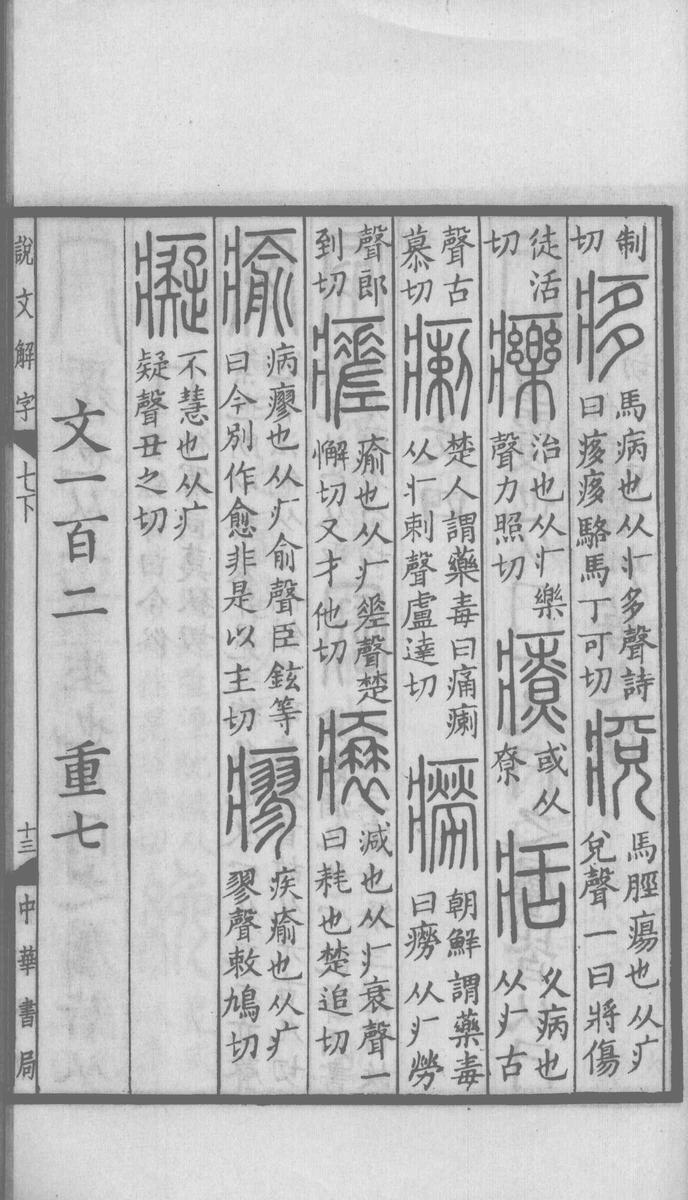 制切痑馬病也从疒多聲詩曰痑痑駱馬丁可切𤷃馬脛瘍也从疒兌聲一曰將傷
徒活切𤻲治也从疒樂聲力照切療或从尞㽽久病也从疒古
聲古慕切瘌楚人謂藥毒曰痛瘌从疒剌聲盧達切癆朝鮮謂藥毒曰癆从疒勞
聲郎到切瘥瘉也从疒𢀩聲楚懈切又才他切𤸬減也从疒衰聲一曰耗也楚追切
瘉病瘳也从疒俞聲臣鉉等曰今別作愈非是以主切瘳疾瘉也从疒翏聲敕鳩切
癡不慧也从疒疑聲丑之切
文一百二 重七
說文解字 七下 十三 中華書局